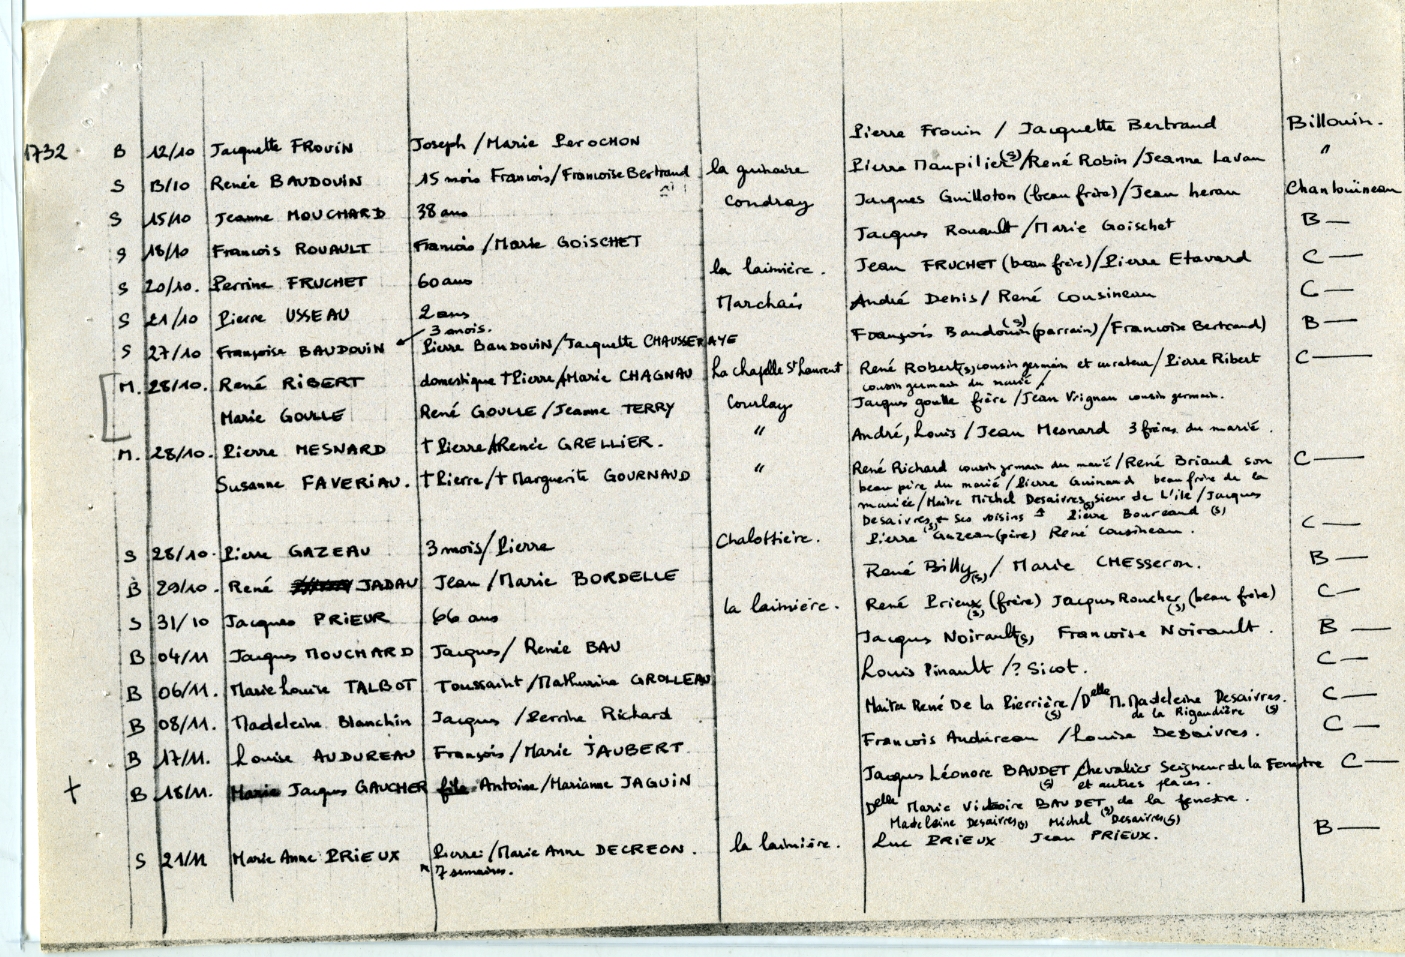 1732 B 12/10 Jacquette FROUIN Joseph / Marie PEROCHON Pierre Frouin / Jacquette Bertrand Billouin.
S 13/10 Renée BAUDOUIN 15 mois François/Françoise Bertrand la guinaire Pierre Maupilier (s)/René Robin /Jeanne Lavau "
S 15/10 Jeanne MOUCHARD 38 ans Coudray Jacques Guilloton (beau frère)/Jean herau Chantouineau
S 18/10 François ROUAULT François /Marie GOISCHET Jacques Rouault /Marie Goischet B —
S 20/10. Perrine FRUCHET 60 ans la laimière. Jean FRUCHET (beau frère)/Pierre Etavard C —
S 21/10 Pierre USSEAU 2 ans Marchais André Denis/ René Cousineau C —
3 mois.
S 27/10 Françoise BAUDOUIN Pierre BAUDOUIN/Jacquette CHAUSSERAYE François Baudouin (s) (parrain)/Françoise Bertrand) B —
M. 28/10. René RIBERT domestique †Pierre/Marie CHAGNAU La chapelle St Laurent René Robert(s) cousin germain et curateur/Pierre Ribert C —
cousin germain du marié /
Marie GOULLE René GOULLE /Jeanne TERRY Courlay Jacques goulle frère /Jean Vrignau cousin germain.
M. 28/10. Pierre MESNARD † Pierre/Renée GRELLIER. " André, Louis / Jean Mesnard 3 frères du marié.
Susanne FAVERIAU. †Pierre/† Marguerite GOURNAUD " René Richard cousin germain du marié /René Briand son C —
beau père du marié /Pierre Guinard beau frère de la
mariée /Maître Michel Desaivres (s) sieur de L'ile /Jacques
Desaivres (s) ses voisins Pierre Boureaud (s)
S 28/10. Pierre GAZEAU 3 mois/ Pierre Chalottière. Pierre Gazeau (père) René Cousineau. C —
B 29/10. René JADAU Jean /Marie BORDELLE René Billy (s) / Marie CHESSERON. B —
S 31/10 Jacques PRIEUR 66 ans la laimière. René Prieux (s) (frère) Jacques Roucher (s) (beau frère) C —
B 04/11 Jacques MOUCHARD Jacques/ Renée BAU Jacques Noirault(s), Françoise Noirault. B —
B 06/11. Marie Louise TALBOT Toussaint /Mathurine GROLLEAU Louis Pinault /? Sicot. C —
B 08/11. Madeleine Blanchin Jacques /Perrine Richard Maitre René De la Pierrière (s) /Delle M. Madeleine Desaivres. C —
de la Rigaudière (s)
B 17/11. Louise AUDUREAU François /Marie JAUBERT François Audureau /Louise Desaivres. C —
† B 18/11. Jacques GAUCHER Antoine /Marianne JAGUIN Jacques Léonore BAUDET (s) Chevalier Seigneur de la Fenestre C —
et autres places.
Delle Marie Victoire BAUDET (s) de la fenestre.
Madeleine Desaivres(s) Michel Desaivres(s)
S 21/11 Marie Anne PRIEUX Pierre /Marie Anne DECREON. la laimière. Luc PRIEUX Jean PRIEUX. B —
7 semaines.